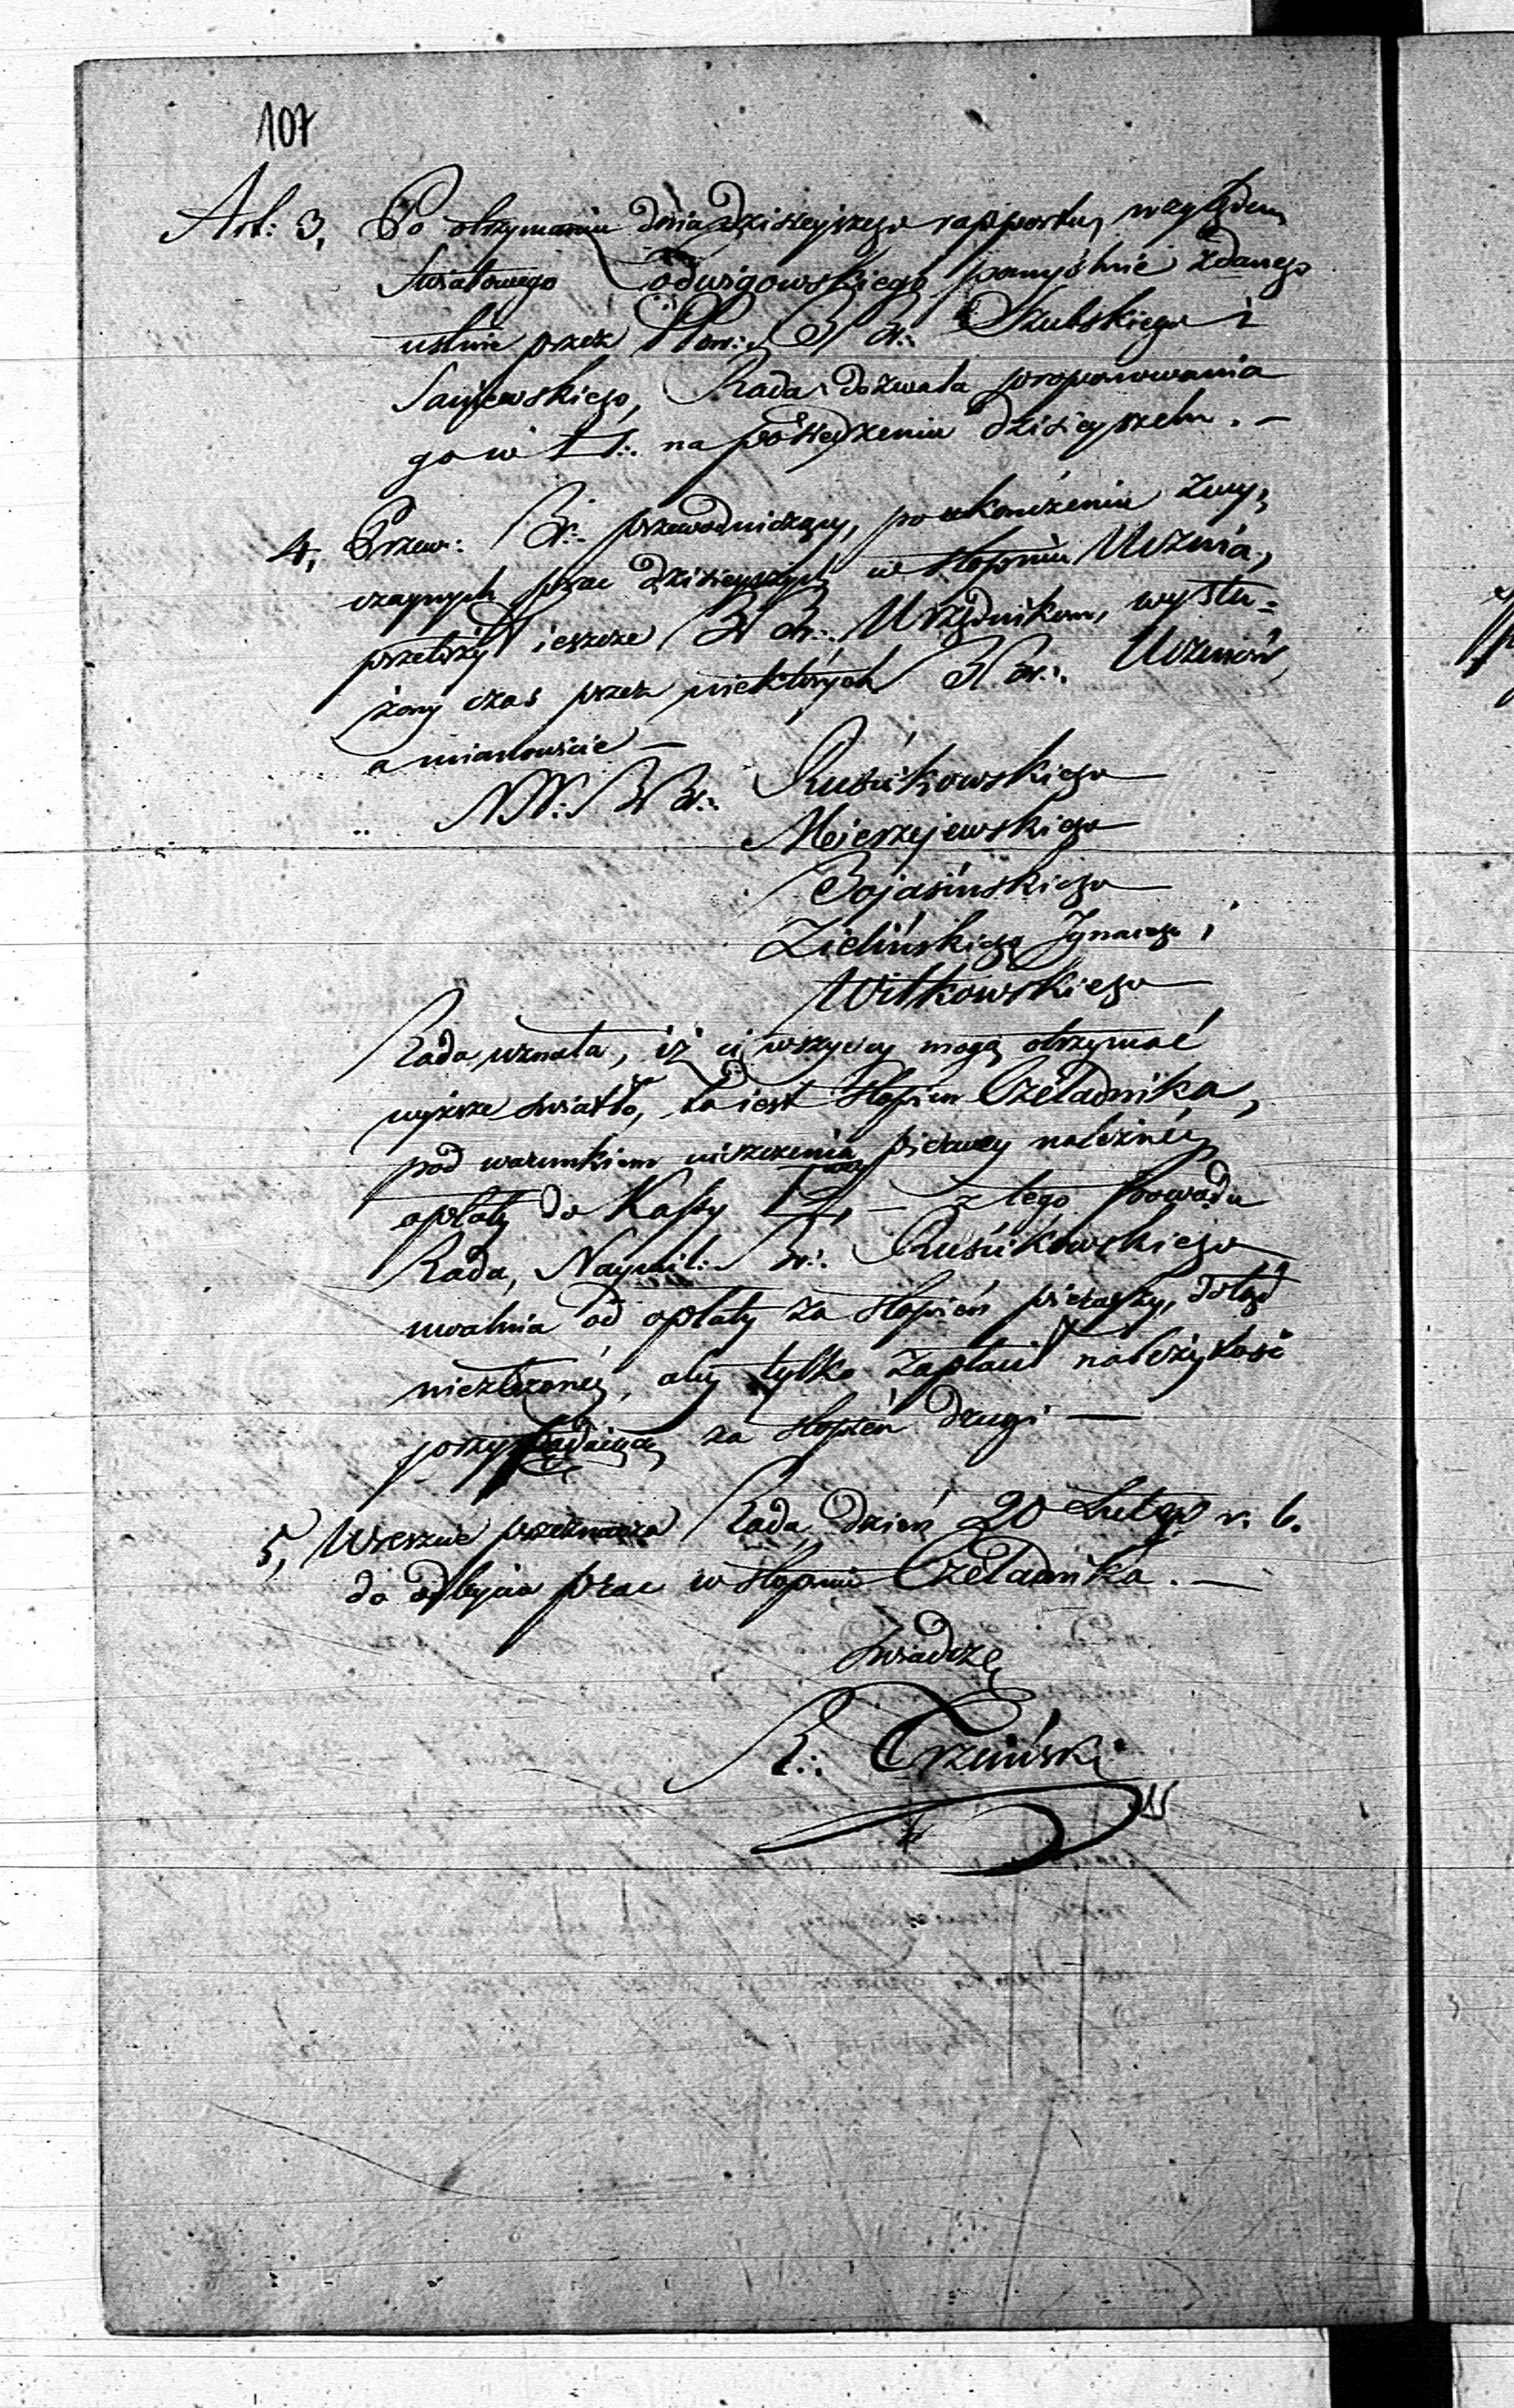 107
Art: 3, Po otrzymaniu dnia dzisieyszego rapportu, względem
Światowego Lodwigowskiego pomyślnie zdanego
ustnie przez PPrzew:. BBr:. Skubskiego i
Sajewskiego, Rada dozwala proponowania
go w □:. na posiedzeniu dzisieyszém. —
4, Przew: Br:. przewodniczący, po ukończeniu zwy,
czaynych prac dzisieyszych w stopniu Ucznia,
przełożył ieszcze BBr:. Urzędnikom, wysłu=
żony czas przez niektórych BBr:. Uczniów,
a mianowicie —
NN: BBr:. Rusinkowskiego
Mierzejewskiego
Bojasińskiego
Zielińskiego Ignacego i
Witkowskiego
Rada uznała, iż ci wszyscy mogą otrzymać
wyższe światło, to iest stopień Czeladnika,
pod warunkiem uiszczenia pierwey należnéy
opłaty do Kassy □, — z tego powodu
Rada, Naymil: Br:. Rusinkowskiego
uwalnia od opłaty za stopień pierwszy, dotąd
niezłożonéy, aby tylko zapłacił należytość
przypadaiącą za stopień drugi —
5, Wreszcie przeznacza Rada dzień 20 Lutego r. b.
do odbycia prac w stopniu Czeladnika. —
Świadczę
R:. Trzciński